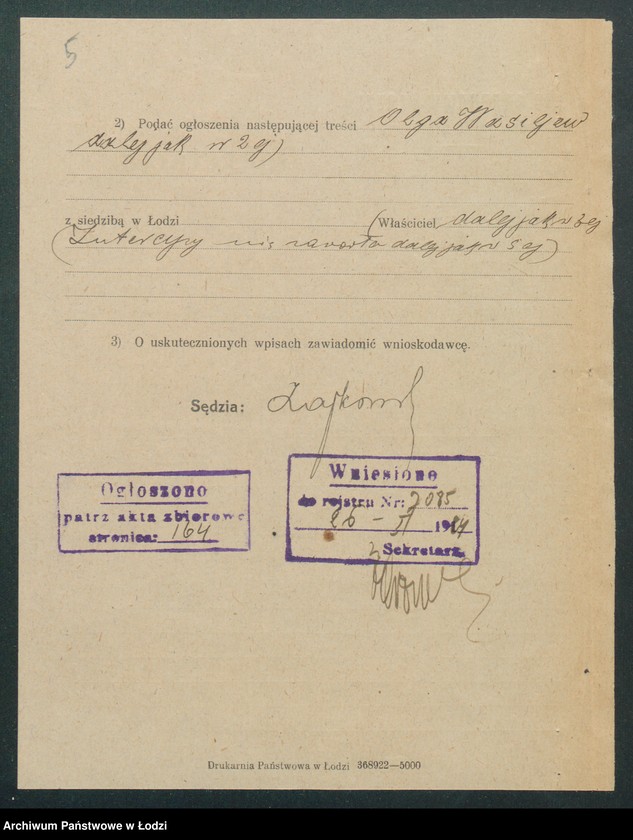 5
2) Podać ogłoszenia następującej treści Olga Wasiljew
dalej jak w 2ej)
z siedzibą w Łodzi (Właściciel dalej jak w 3ej
(Intercyzy nie zawarła dalej jak w 5ej)
3) O uskutecznionych wpisach zawiadomić wnioskodawcę.
Sędzia:
Ogłoszono
patrz akta zbiorowe
stronica: 164
Wniesiono
do rejstru Nr: 2085
26 - 19
Sekretarz
Drukarnia Państwowa w Łodzi 368922—5000
Archiwum Państwowe w Łodzi